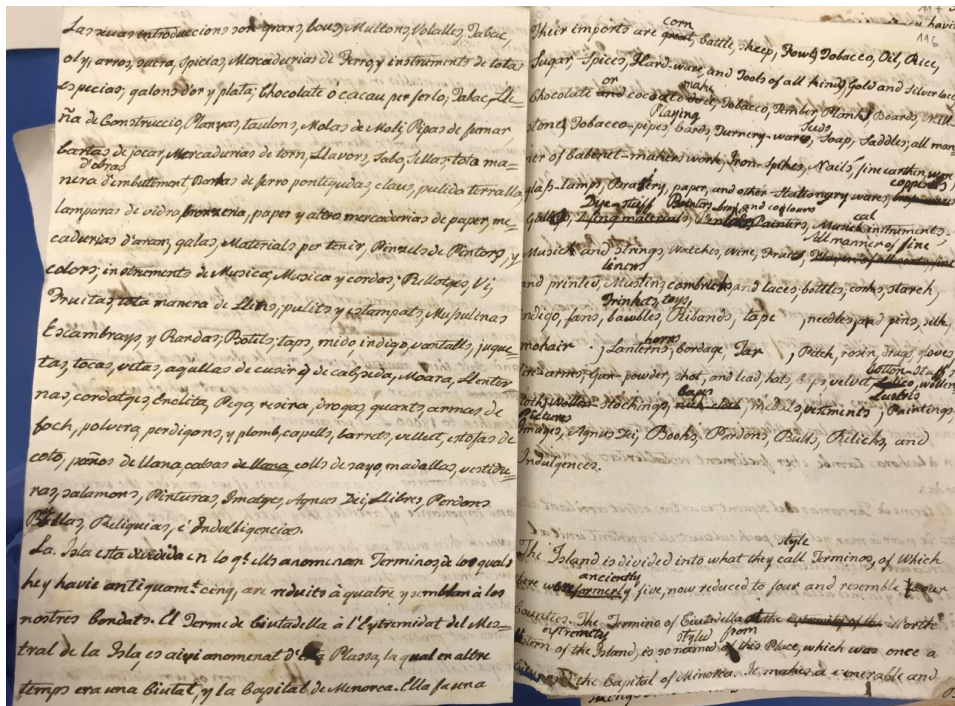 Las suas introduccions son grans, bous, Multons, Volalles, Tabac,
oly, arros, sucra, spicias, Mercadurias de Ferro, y instruments de tota
especias, galons d'or y plata; Chocolate o cacau per ferlo, Tabac, Lle-
ña de Construccio, Planxas, taulons, Molas de Moli, Pipas de fumar
Cartas de jocar, Mercadurias de torn, Llavors, Sabo, Sellas, tota ma-
d'obras
nera d'embutiment Barras de ferro pontegudas, claus, pulida terralla
lamparas de vidro, bronzeria, paper y altro mercadurias de paper, me-
cadurias d'aram, galas, Materials per tenir, Pinzells de Pintors, y
colors, instruments de Musica, Musica y cordas, Rellotges, Vi,
Fruitas, tota manera de Llins, pulits y estampats, Mussulinas
Escambrays, y Randas, Botils, taps, mido, indigo, vantalls, jugue-
tas, tocas, vetas, agullas de cusir y de cabseda, Moara, Llenter
nas, cordatges, Enclita, Pega, resina, drogas, guants, armas de
foch, polvera, perdigons, y plomb, capells, barrets, vellut, estofas de
coto, paños de llana, calsas de llana colls de sayo, madallas, vestidu-
ras, salamons, Pinturas, Imatges, Agnus Dei, Llibres, Perdons
Bullas, Reliquias, é Indulligencias.
La Isla esta dividida en lo q.e ells anomenan Terminos, de los quals
hey havie antiquam.t cinq, are reduits à quatre y semblan à los
nostres Condats. El Terme de Ciutadella à l'Extremidat del Mes-
tral de la Isla, es aixi anomenat d'esta Plassa, la qual en altre
temps era una Ciutat, y la Capital de Menorca. Ella fa una
116
corn
Their imports are great, Cattle, sheep, Fowl, Tobacco, Oil, Rice,
Sugar, Spices, Hard-ware, and Tools of all kind, Gold and Silver lace
or make
Chocolate and cocoa to do it, Tobacco, Timber, Planks, Boards, Mill-
Playing Seeds
stones, Tobacco-pipes, Cards, Turnery-ware, Soap, Saddles, all man
ner of Cabenet-makers work, Iron-Spikes, Nails, fine earthin ware
copperas
glass-lamps, Brasiery, paper, and other Stationary wares,
Dye-stuff Painters brush and colours
Painters, Musick instruments,
cal
All manner of fine
Musick and strings, Watches, Wine, Fruits,
linens
and printed, Muslin, cambricks and laces, bottles, corks, starch,
Trinkets, toys,
indigo, fans, bawbles, Ribands, tape , needles, and pins, silk,
horns
mohair , Lanterns, Cordage, Tar , Pitch, rosin, drugs, gloves,
Cotton-Stuffs
fire-arms, Gun-powder, shot, and lead, hats, caps velvet, woollen
Caps Lustres
cloth, Stockings, medals, vestments, Paintings,
Pictures
Images, Agnus Dei, Books, Pardons, Bulls, Relicks, and
Indulgences.
style
The Island is divided into what they call Terminos, of Which
anciently
there were formerly five, now reduced to four and resemble our
Counties. The Termino of Ciutadella at the extremity of the North
extremity styled from
Western of the Island, is so named of this Place, which was once a
City and the Capital of Minorca. It makes a venerable and